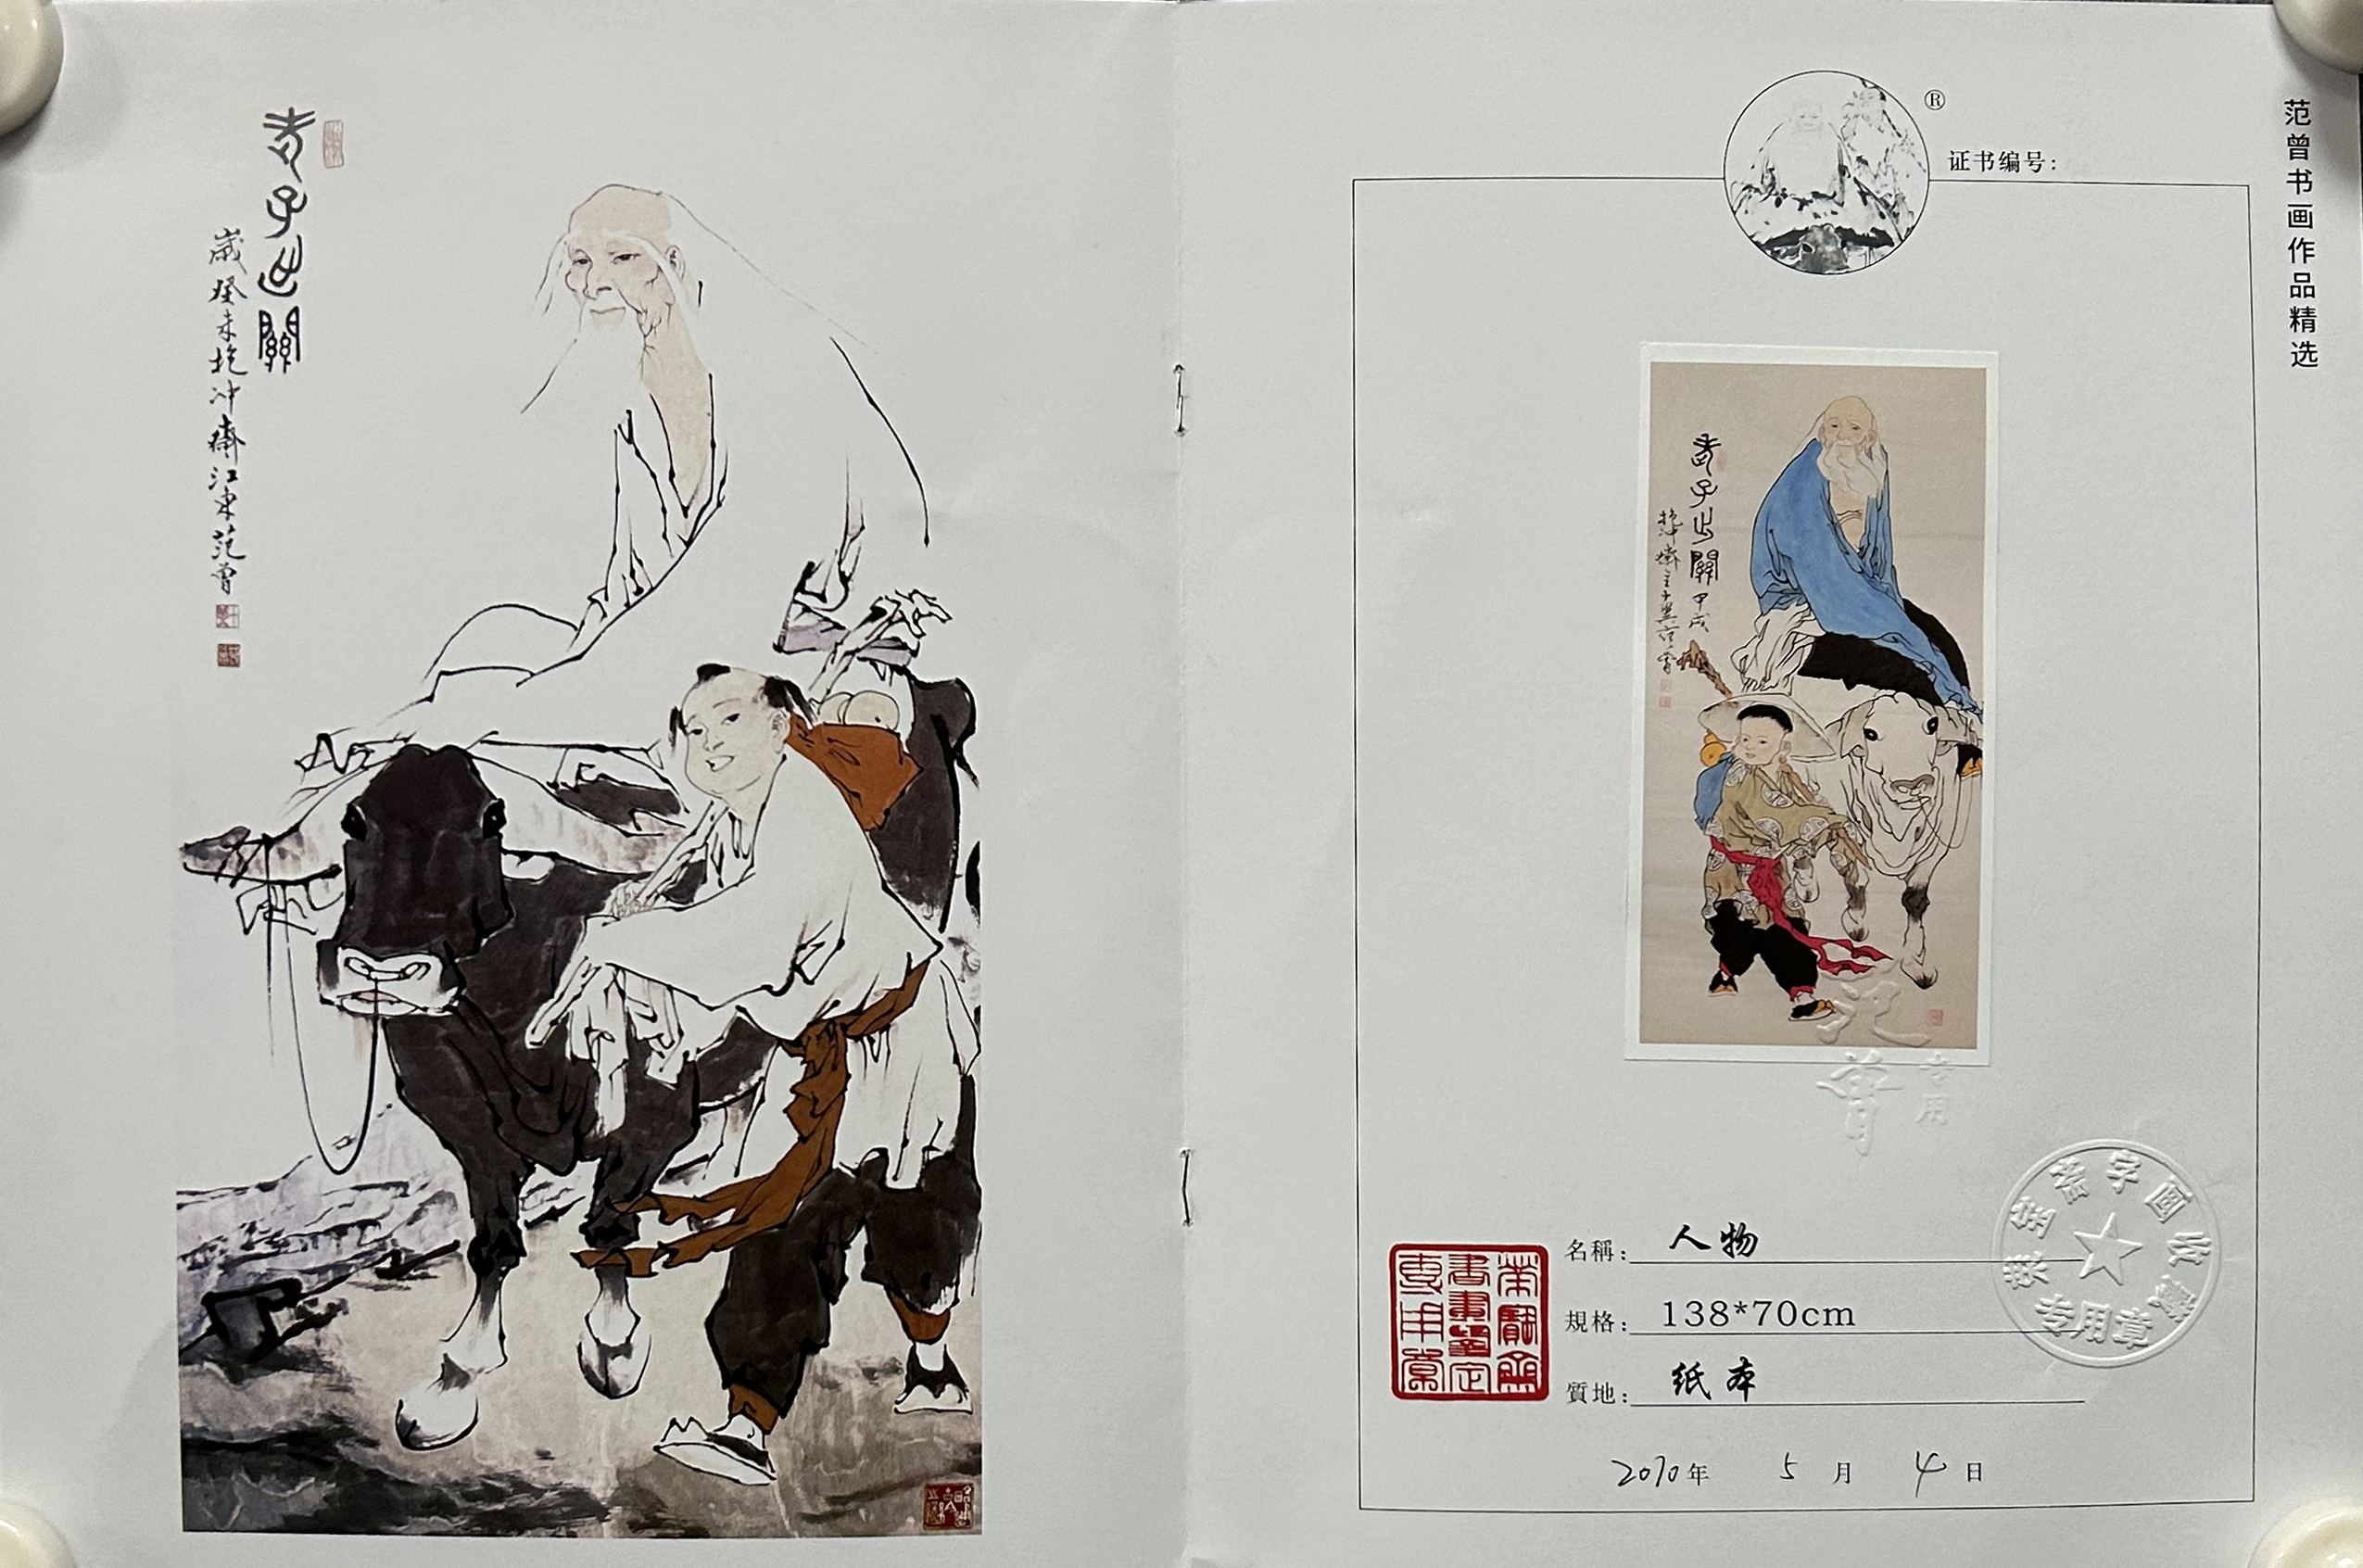 老子出關
歲癸未抱冲齋江東范曾
®
证书编号：
范曾书画作品精选
老子出關
甲戌
抱冲齋主十翼范曾
范曾
专用
荣宝斋字画收藏
专用章
榮寶齋
書畫鑒定
專用章
名稱：人物
規格：138*70cm
質地：纸本
2010年 5月 4日